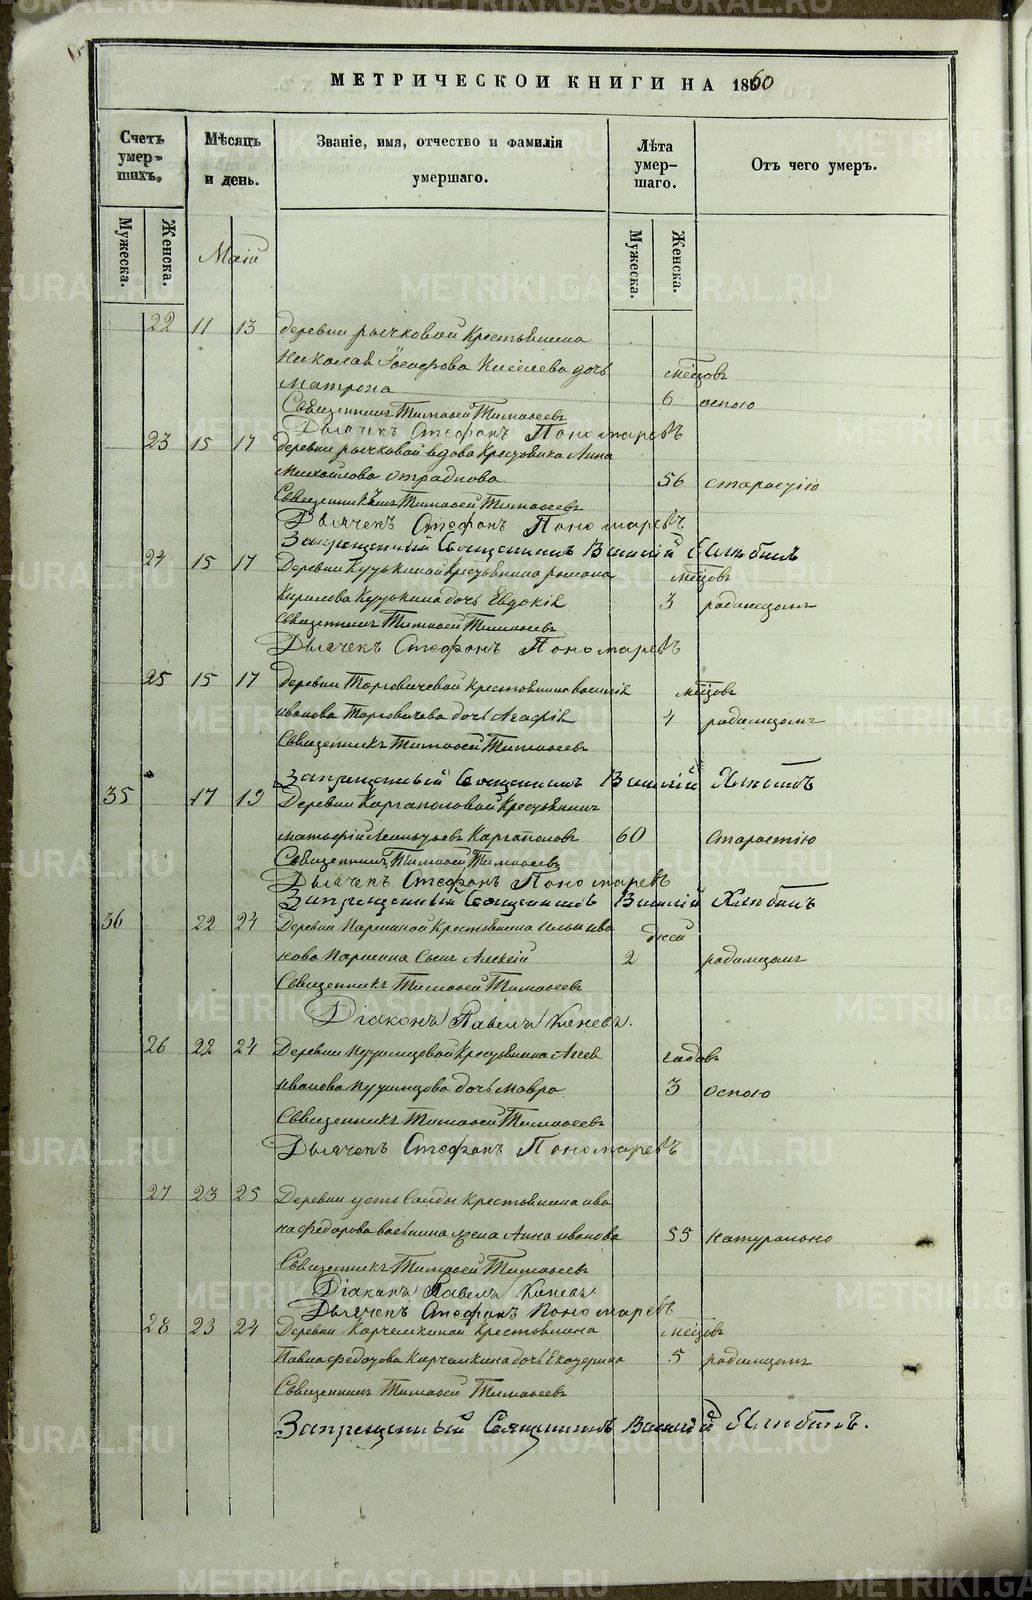 МЕТРИЧЕСКОЙ КНИГИ НА 1860
Счетъ умер-шихъ.
Мѣсяцъ и день.
Званіе, имя, отчество и фамилія умершаго.
Лѣта умер-шаго.
Отъ чего умеръ.
Мужеска.
Женска.
Мужеска.
Женска.
Маій
22 11 13 деревни рычковой Крестьянина
Николая Іосифова Киселева дочь мѣсяцовъ
Матрона 6 оспою
Священникъ Тимофей Тимофеевъ
Дьячекъ Стефанъ Пономаревъ
23 15 17 деревни рычковой вдова Крестьянка Анна
Михайлова отраднова 56 старостію
Священникъ Тимофей Тимофеевъ
Дьячекъ Стефанъ Пономаревъ
Запрещенный Священникъ Василій
24 15 17 Деревни Кузькиной Крестьянина романа мѣсяцовъ
Кирилова Кузькина дочь Евдокія 3 родимцомъ
Священникъ Тимофей Тимофеевъ
Дьячекъ Стефанъ Пономаревъ
25 15 17 деревни Торговичевой Крестьянина василія мѣсяцовъ
иванова Торговичева дочь Агафія 4 родимцомъ
Священникъ Тимофей Тимофеевъ
Запрещенный Священникъ Василій
35 17 19 Деревни Каргаполовой Крестьянинъ
матьфій Каргаполовъ 60 старостію
Священникъ Тимофей Тимофеевъ
Дьячекъ Стефанъ Пономаревъ
Запрещенный Священникъ Василій
36 22 24 Деревни Паршиной Крестьянина ильи ива дней
нова Паршина Сынъ Алексій 2 родимцомъ
Священникъ Тимофей Тимофеевъ
Діаконъ Павелъ
26 22 24 Деревни Крестьянина годовъ
Иванова дочь мавра 3 оспою
Священникъ Тимофей Тимофеевъ
Дьячекъ Стефанъ Пономаревъ
27 23 25 Деревни усть Салды Крестьянина ива
на федорова жена Анна иванова 55 натурально
Священникъ Тимофей Тимофеевъ
Діаконъ Павелъ
Дьячекъ Стефанъ Пономаревъ
28 23 24 Деревни Карчемкиной Крестьянина мѣсяцовъ
Павла федотова Карчемкина дочь Екатерина 5 родимцомъ
Священникъ Тимофей Тимофеевъ
Запрещенный Священникъ Василій
METRIKI.GASO-URAL.RU